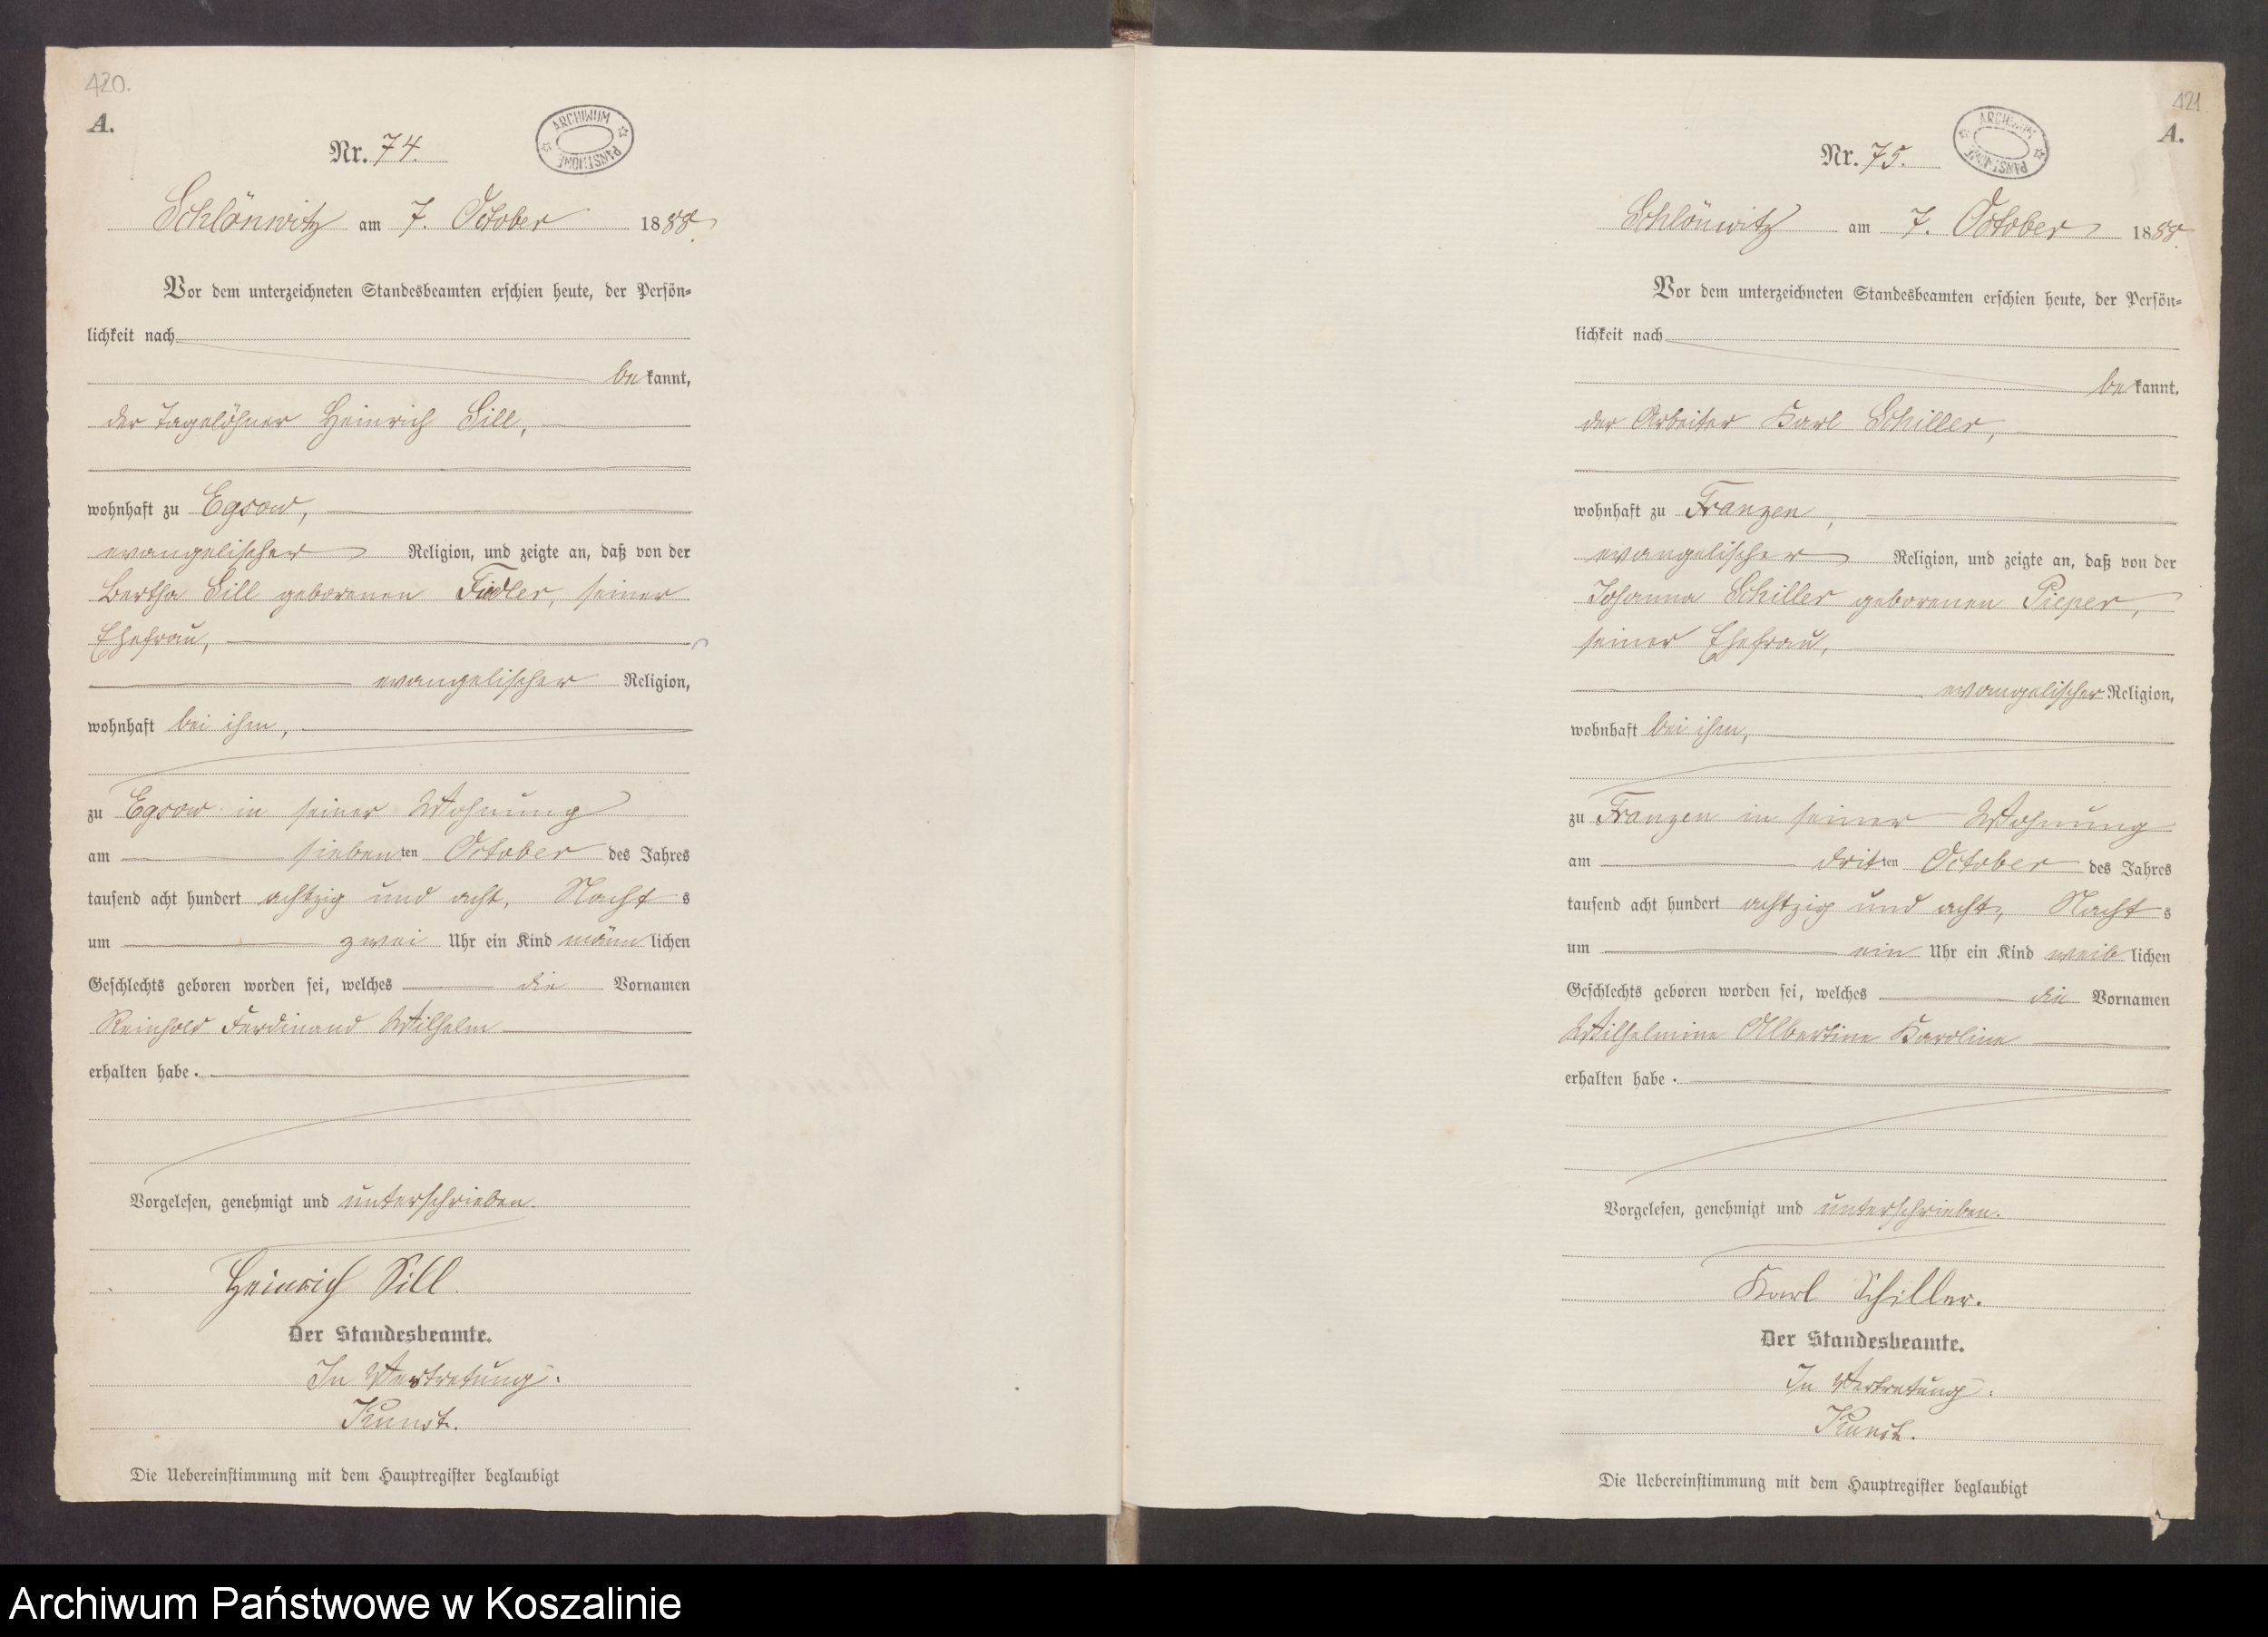 420.
A.
Nr. 74.
ARCHIWUM PAŃSTWOWE
Schlönwitz am 7. October 1888.
Vor dem unterzeichneten Standesbeamten erschien heute, der Persön-
lichkeit nach
bekannt,
der Tagelöhner Heinrich Sill,
wohnhaft zu Egsow,
evangelischer Religion, und zeigte an, daß von der
Bertha Sill geborenen Fidler, seiner
Ehefrau,
evangelischer Religion,
wohnhaft bei ihm,
zu Egsow in seiner Wohnung
am siebenten October des Jahres
tausend acht hundert achtzig und acht, Nachts
um zwei Uhr ein Kind männlichen
Geschlechts geboren worden sei, welches die Vornamen
Reinhold Ferdinand Wilhelm
erhalten habe.
Vorgelesen, genehmigt und unterschrieben.
Heinrich Sill.
Der Standesbeamte.
In Vertretung.
Kunst.
Die Uebereinstimmung mit dem Hauptregister beglaubigt
421
A.
Nr. 75.
ARCHIWUM PAŃSTWOWE
Schlönwitz am 7. October 1888.
Vor dem unterzeichneten Standesbeamten erschien heute, der Persön-
lichkeit nach
bekannt,
der Arbeiter Karl Schiller,
wohnhaft zu Franzen,
evangelischer Religion, und zeigte an, daß von der
Johanna Schiller geborenen Pieper,
seiner Ehefrau,
evangelischer Religion,
wohnhaft bei ihm,
zu Franzen in seiner Wohnung
am dritten October des Jahres
tausend acht hundert achtzig und acht, Nachts
um ein Uhr ein Kind weiblichen
Geschlechts geboren worden sei, welches die Vornamen
Wilhelmine Albertine Karoline
erhalten habe.
Vorgelesen, genehmigt und unterschrieben.
Karl Schiller.
Der Standesbeamte.
In Vertretung.
Kunst.
Die Uebereinstimmung mit dem Hauptregister beglaubigt
Archiwum Państwowe w Koszalinie